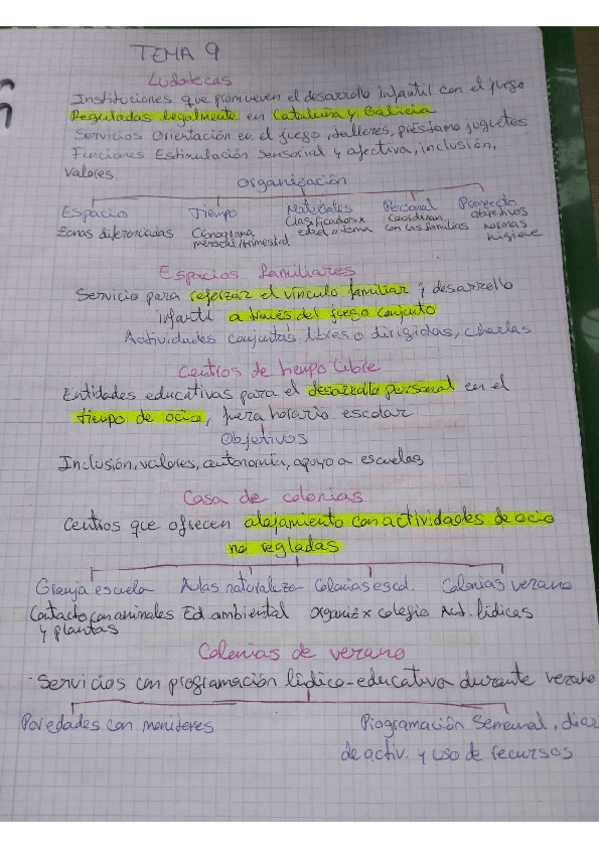 TEMA 9
Ludotecas
Instituciones que promueven el desarrollo infantil con el juego
Reguladas legalmente en Cataluña y Galicia
Servicios Orientación en el juego, talleres, préstamo juguetes
Funciones Estimulación sensorial y afectiva, inclusión,
valores
Organización
Espacio Tiempo Materiales Personal Proyecto
Zonas diferenciadas Cronograma mensual/trimestral Clasificados x edad o tema Coordinan con las familias objetivos normas higiene
Espacios familiares
Servicio para reforzar el vínculo familiar y desarrollo
infantil a través del juego conjunto
Actividades conjuntas libres o dirigidas, charlas
Centros de tiempo libre
Entidades educativas para el desarrollo personal en el
tiempo de ocio, fuera horario escolar
Objetivos
Inclusión, valores, autonomía, apoyo a escuelas
Casa de colonias
Centros que ofrecen alojamiento con actividades de ocio
no regladas
Granja escuela Aulas naturaleza Colonias escol. Colonias verano
Contacto con animales Ed. ambiental organiz x colegio Act. lúdicas
y plantas
Colonias de verano
Servicios con programación lúdico-educativa durante verano
Paredades con monitores Programación semanal, diar
de activ. y uso de recursos